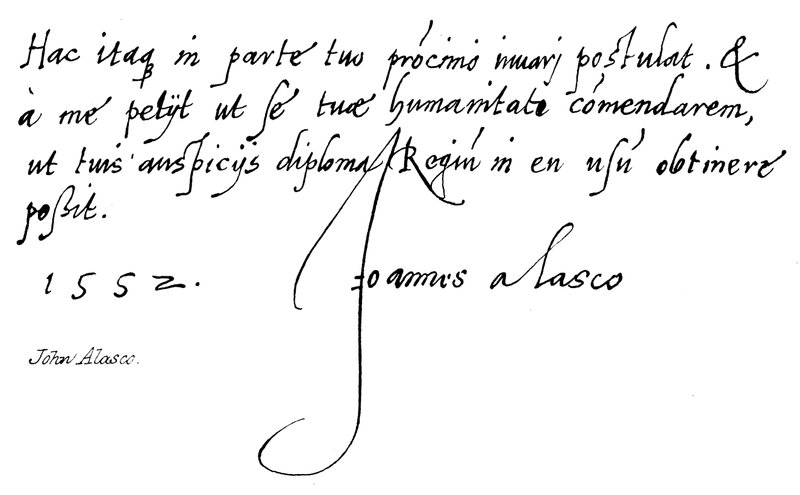 Hac itaqꝫ in parte tuo prócinio iuuari postulat. &
à me petijt ut se tuæ humanitati cómendarem,
ut tuis auspicijs diploma Regiú in eū usú obtinere
poßit.
1552. Joannes alasco
John Alasco.